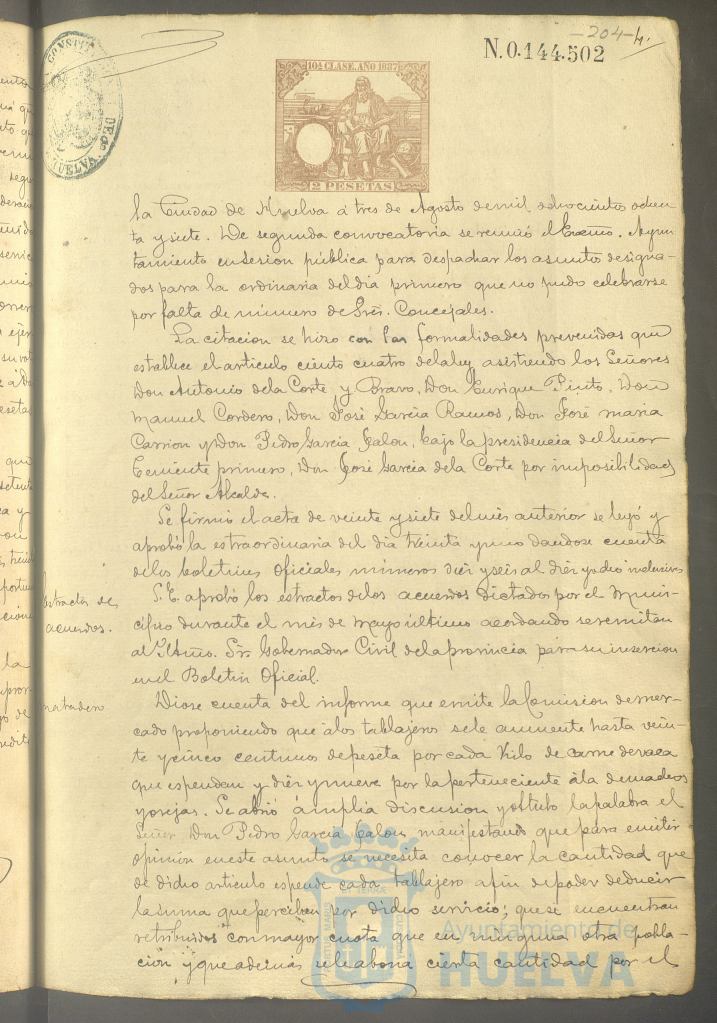 -204-
N.0.144.502
CONSTIT
DE
HUELVA
10ª CLASE. AÑO 1887
2 PESETAS
la Ciudad de Huelva á tres de Agosto de mil ochocientos ochen-
ta y siete. De segunda convocatoria se reunió el Excmo. Ayun-
tamiento en sesion pública para despachar los asuntos designa-
dos para la ordinaria del dia primero que no pudo celebrarse
por falta de número de Sres. Concejales.
La citacion se hizo con las formalidades prevenidas que
establece el articulo ciento cuatro de la ley asistiendo los Señores
Don Antonio de la Corte y Bravo, Don Enrique Pinto, Don
Manuel Cordero, Don José Garcia Ramos, Don José Maria
Carrion y Don Pedro Garcia Jalon, bajo la presidencia del Señor
Teniente primero, Don José Garcia de la Corte por imposibilidad
del Señor Alcalde.
Se firmó el acta de veinte y siete del mes anterior se leyó y
aprobó la estraordinaria del dia treinta y uno dandose cuenta
de los boletines oficiales números diez y seis al diez y ocho inclusives
Estractos de
acuerdos.
S. E. aprobó los estractos de los acuerdos dictados por el Muni-
cipio durante el mes de Mayo último acordando se remitan
al Iltmo. Sr. Gobernador Civil de la provincia para su insercion
en el Boletin Oficial.
Matadero
Diose cuenta del informe que emite la Comision de mer-
cado proponiendo que á los tablajeros se le aumente hasta vein-
te y cinco centimos de peseta por cada Kilo de carne de vaca
que espendan y diez y nueve por la perteneciente á la de machos
y ovejas. Se abrió ámplia discusion y obtubo la palabra el
Señor Don Pedro Garcia Jalon manifestando que para emitir
opinion en este asunto se necesita conocer la cantidad que
de dicho articulo espende cada tablajero a fin de poder deducir
la suma que perciben por dicho servicio; que se encuentran
retribuidos con mayor cuota que en ninguna otra pobla-
cion y que además se le abona cierta cantidad por el
Ayuntamiento de
HUELVA